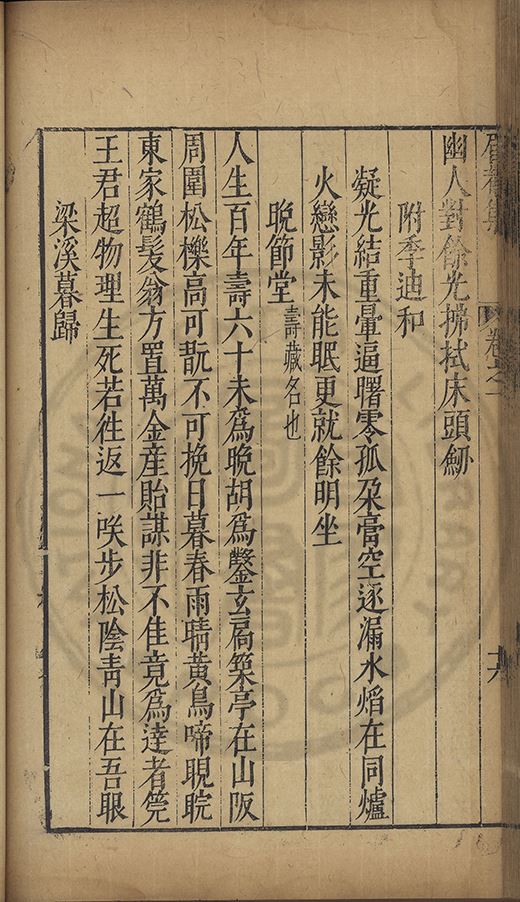 卷之一
幽人對餘光拂拭床頭劒
附李迪和
凝光結重暈逼曙零孤朶膏空逐漏水焰在同爐
火戀影未能眠更就餘明坐
晚節堂壽藏名也
人生百年壽六十未爲晚胡爲鑿玄扃築亭在山阪
周圍松櫟高可翫不可挽日暮春雨晴黄鳥啼睍睆
東家鶴髪翁方置萬金産貽謀非不佳竟爲達者筦
王君超物理生死若徃返一咲步松陰青山在吾眼
梁溪暮歸